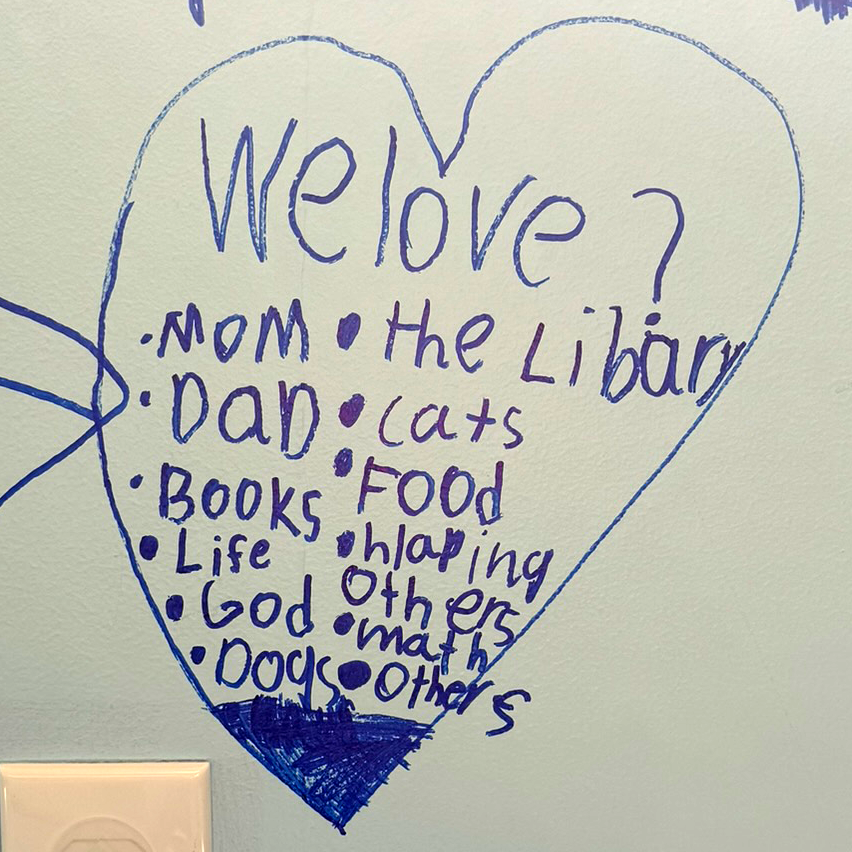 We love ?
• MOM • the Libary
• DaD • cats
• Books • Food
• Life • hlaping
Others
• God • math
• Dogs • Others